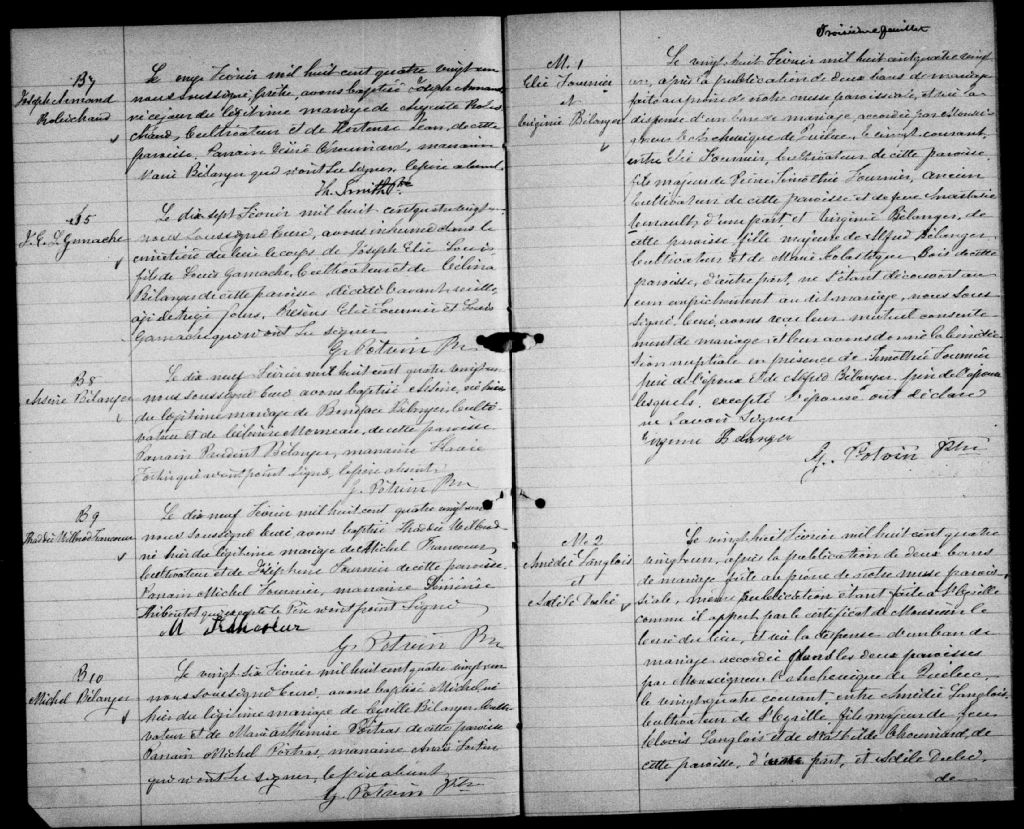 B7
Joseph Armand
Robichaud
Le onze Février mil huit cent quatre vingt un
nous soussigné, prêtre, avons baptisé Joseph Armand
né ce jour du légitime mariage de Auguste Robi
chaud, Cultivateur et de Hortense Jean, de cette
paroisse. Parrain Désiré Chouinard, marraine
Marie Bélanger qui n'ont su signer, le père absent.
Th. Smith Ptre
S5
J. E. L. Gamache
Le dix sept Février mil huit cent quatre vingt un
nous soussigné Curé, avons inhumé dans le
cimetière du lieu le corps de Joseph Elie Louis
fils de Louis Gamache, Cultivateur et de Célina
Bélanger de cette paroisse, décédé l'avant-veille,
agé de treize jours. Présens Elie Fournier et Louis
Gamache qui n'ont su signer
G. Potvin Ptre
B8
Arsène Bélanger
Le dix neuf Février mil huit cent quatre vingt un
nous soussigné Curé avons baptisé Arsène, né hier
du légitime mariage de Boniface Bélanger, Culti-
vateur et de Célinire Morneau, de cette paroisse
Parrain Prudent Bélanger, marraine Marie
Fortin qui n'ont point signé, le père absent.
G. Potvin Ptre
B9
Thaddée Wilbrod Francoeur
Le dix neuf Février mil huit cent quatre vingt un
nous soussigné Curé avons baptisé Thaddée Wilbrod
né hier du légitime mariage de Michel Francoeur,
Cultivateur et de Joséphine Fournier de cette paroisse.
Parrain Michel Fournier, marraine Démérise
Thiboutot qui excepté le Père n'ont point signé
M Francoeur
G. Potvin Ptre
B10
Michel Bélanger
Le vingt six Février mil huit cent quatre vingt un
nous soussigné Curé, avons baptisé Michel, né
hier du légitime mariage de Cyrille Bélanger Culti-
vateur et de Marie Arthémise Poitras de cette paroisse
Parrain Michel Poitras, marraine Anaïs Fortin
qui n'ont su signer, le père absent
G. Potvin Ptre
Troisième feuillet
M. 1
Elie Fournier
et
Virginie Bélanger
Le vingt huit Février mil huit cent quatre vingt
un, après la publication de deux bans de mariage
faite au prône de notre messe paroissiale, et vu la
dispense d'un ban de mariage, accordée par Monsei-
gneur l'Archevêque de Québec, le vingt courant,
entre Elie Fournier, Cultivateur de cette paroisse,
fils majeur de Pierre Timothée Fournier, ancien
Cultivateur de cette paroisse et de feue Anastasie
d'une part, et Virginie Bélanger, de
cette paroisse, fille majeure de Alfred Bélanger
Cultivateur et de Marie Scolastique Bois de cette
paroisse, d'autre part, ne s'étant découvert au
cun empêchement au dit mariage, nous sous
signé, Curé, avons reçu leur mutuel consente
ment de mariage et leur avons donné la bénédic
tion nuptiale en présence de Timothée Fournier
père de l'époux et de Alfred Bélanger père de l'épouse
lesquels, excepté l'épouse ont déclaré
ne savoir signer
Virginie Bélanger
G. Potvin Ptre
M. 2
Amédée Langlois
et
Adèle Dubé
Le vingt huit Février mil huit cent quatre
vingt un, après la publication de deux bans
de mariage faite au prône de notre messe parois-
siale, même publication étant faite à St Cyrille
comme il appert par le certificat de Monsieur le
Curé du lieu, et vu la dispense d'un ban de
mariage accordée dans les deux paroisses
par Monseigneur l'Archevêque de Québec,
le vingt quatre courant, entre Amédée Langlois,
Cultivateur de St Cyrille, fils majeur de feu
Clovis Langlois et de Mathilde Chouinard, de
cette paroisse, d'une part, et Adèle Dubé,
de